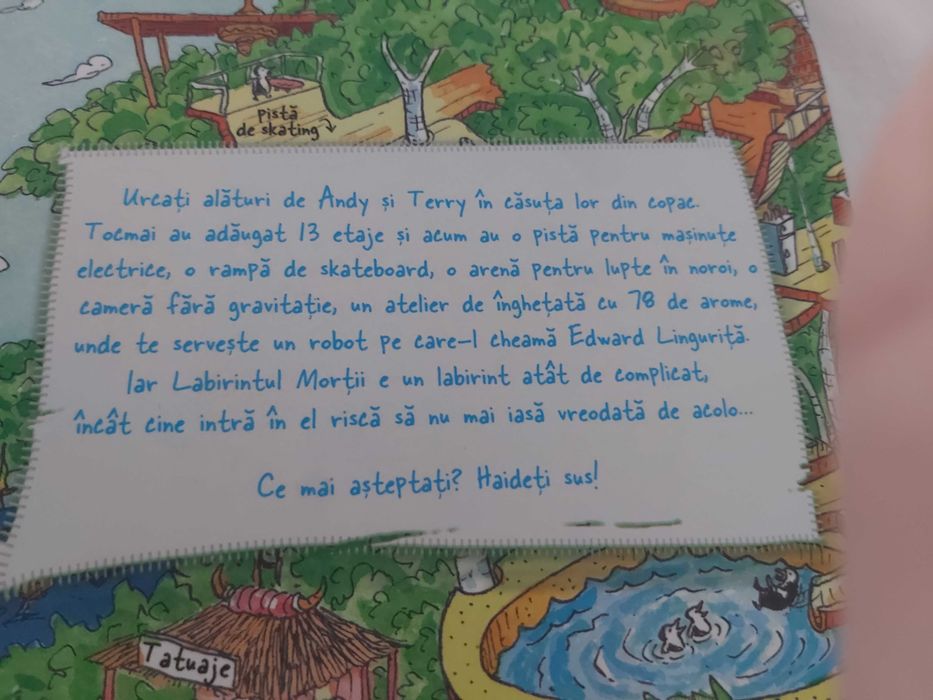 pistă
de skating
Urcați alături de Andy și Terry în căsuța lor din copac.
Tocmai au adăugat 13 etaje și acum au o pistă pentru mașinuțe
electrice, o rampă de skateboard, o arenă pentru lupte în noroi, o
cameră fără gravitație, un atelier de înghețată cu 78 de arome,
unde te servește un robot pe care-l cheamă Edward Linguriță.
Iar Labirintul Morții e un labirint atât de complicat,
încât cine intră în el riscă să nu mai iasă vreodată de acolo...
Ce mai așteptați? Haideți sus!
Tatuaje